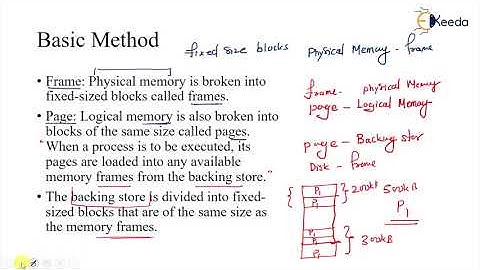 Ekeeda
Basic Method
fixed size blocks
Physical Memory - frame
• Frame: Physical memory is broken into
fixed-sized blocks called frames.
• Page: Logical memory is also broken into
blocks of the same size called pages.
"When a process is to be executed, its
pages are loaded into any available
memory frames from the backing store."
• The backing store is divided into fixed-
sized blocks that are of the same size as
the memory frames.
frame - physical Memory
page - Logical Memory
page - Backing stor
Disk - frame
P1
P1
200KB
500KB
P1
P1
P1
P1
300KB